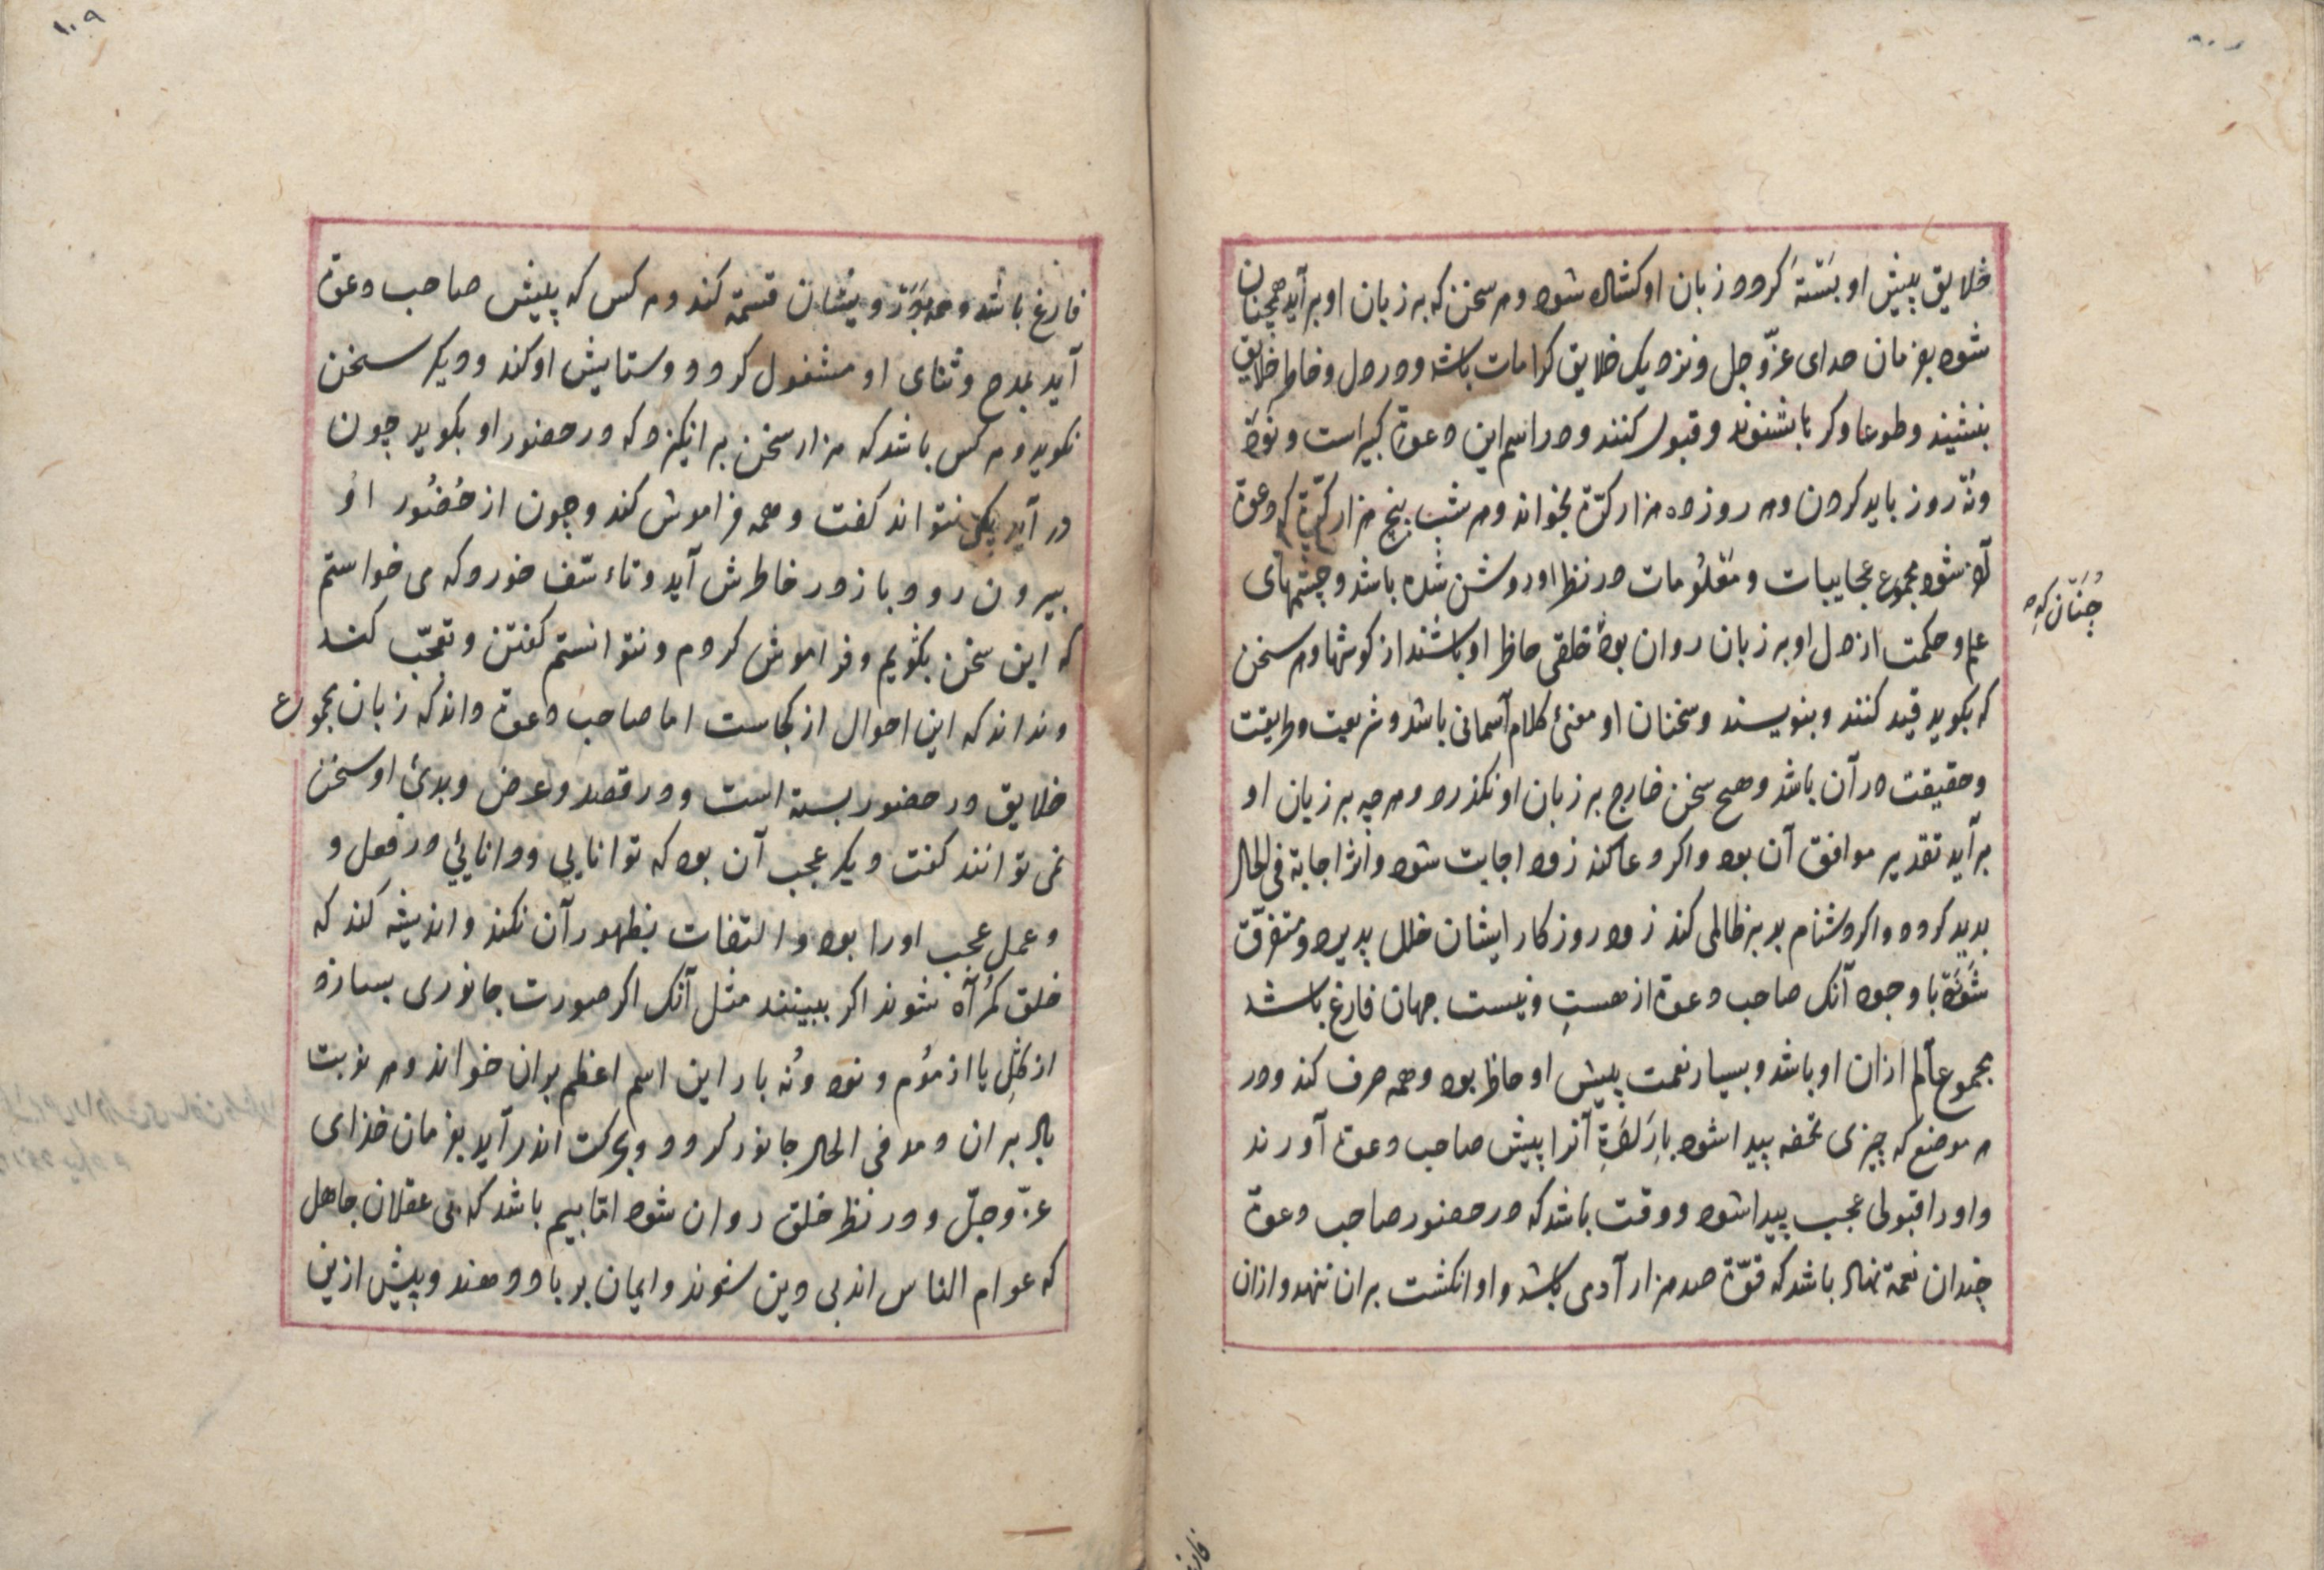 خلایق پیش او بَستَهَ کردد زبان او کشاله شود و هر سخن که بر زبان او بر آید همچنان
شود بفرمان خدای عزّ و جل و نزدیک خلایق کرامات باشد و در دل و خاطر خلایق
بنشیند و طوعا و کرها بشنوند و قبول کنند و در اسم این دعوة کبیر است و نَوَد
و نُه روز باید کردن و هر روز ده هزار کرّة بخواند و هر شب پنج هزار کرّة که دعوة
شود مجموع عجایبات و مَعْلُومات در نظر او روشن شده باشد و چشمهای
علم و حکمت از دل او بر زبان روان بود خلقی حاظر او باشند از کوشها و هر سخن
که بکوید قید کنند و بنویسند و سخنان او معنئ کلام آسمانی باشد و شریعت و طریقت
و حقیقت در آن باشد و هیچ سخن خارج بر زبان او نکذرد و هر چه بر زبان او
بر آید تقدیر موافق آن بود و اکر دعا کند زود اجابت شود و اثر اجابة فی الحال
بدید کردد و اکر دشنام بد بر ظالمی کند زود روزکار ایشان خلل پدیرد و متفرّق
شَوَند با وجود آنک صاحب دعوة از هستِ و نیست جهان فارغ باشد
مجموع عالم از ان او باشد و بسیار نعمت پیش او حاظر بود و همه صرف کند و در
هر موضع که چیزی تحفه پیدا شود آنرا پیش صاحب دعوة آورند
و اورا قبولی عجب پیدا شود و وقت باشد که در حضور صاحب دعوة
چندان نعمة باشد که قوّة صد هزار آدمی باشد و او انکشت بر ان ننهد و ازان
چُنَان که
فارغ
۱۰۹
فارغ باشد و همه بَر درویشان قسمة کند و هر کس که پیش صاحب دعوة
آید بمدح و ثنای او مشغول کردد و ستایش او کند و دیکر سخن
نکوید و هر کس باشد که هزار سخن بر انکیزد که در حضور او بکوید چون
در آید یکی نتواند کفت و همه فراموش کند و چون از حُضُور او
بیرون رود باز در خاطرش آید و تاءسّف خورد که می خواستم
که این سخن بکویم و فراموش کردم و نتوانستم کفتن و تعجّب کند
و نداند که این احوال از کجاست اما صاحب دعوة داند که زبان مجموع
خلایق در حضور بسته است و در قصد و عرض و بدئ او سخن
نمی توانند کفت دیکر عجب آن بود که توانایی و دانایئ در فعل و
و عمل عجب اورا بود و التفات بظهور آن نکند و اندیشه کند که
خلق کمُرآه شوند اکر ببینند مثل آنک اکر صورت جانوری بسازد
از کِلِ یا از مُوم و نود و نُه بار این اسم اعظم بران خواند و هر نوبت
باد بر ان دمد فی الحال جانور کردد و بحرکت اندر آید بفرمان خدای
عزّ و جلّ و در نظر خلق روان شود امّا بیم باشد که بی عقلان جاهل
که عوام الناس اند بی دین شوند و ایمان بر باد دهند و پیش ازین